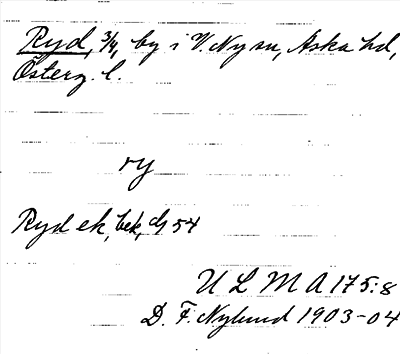 Ryd, 3/4, by i V. Ny sn, Aska hd,
Österg. l.
ry
Ryd ek, bek, dj 54
U L M A 175:8
D. F. Nylund 1903-04